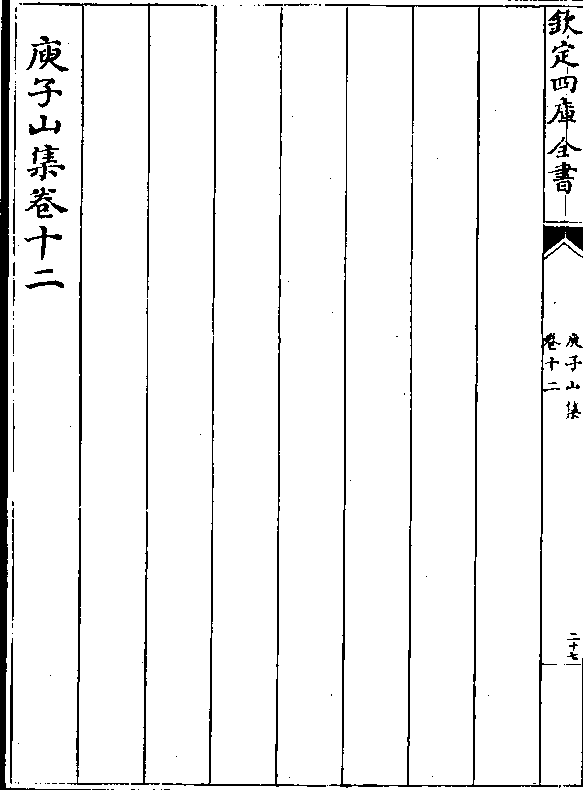 欽定四庫全書
庾子山集
卷十二
二十七
庾子山集卷十二